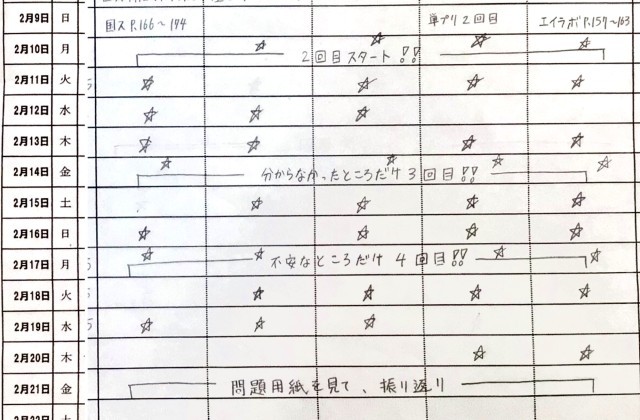 2月9日 日 国ス P.166～174 単プリ2回目 エイラボ P.157～163
2月10日 月 2回目スタート!!
2月11日 火
2月12日 水
2月13日 木
2月14日 金 分からなかったところだけ3回目!!
2月15日 土
2月16日 日
2月17日 月 不安なところだけ 4回目!!
2月18日 火
2月19日 水
2月20日 木
2月21日 金 問題用紙を見て、振り返り